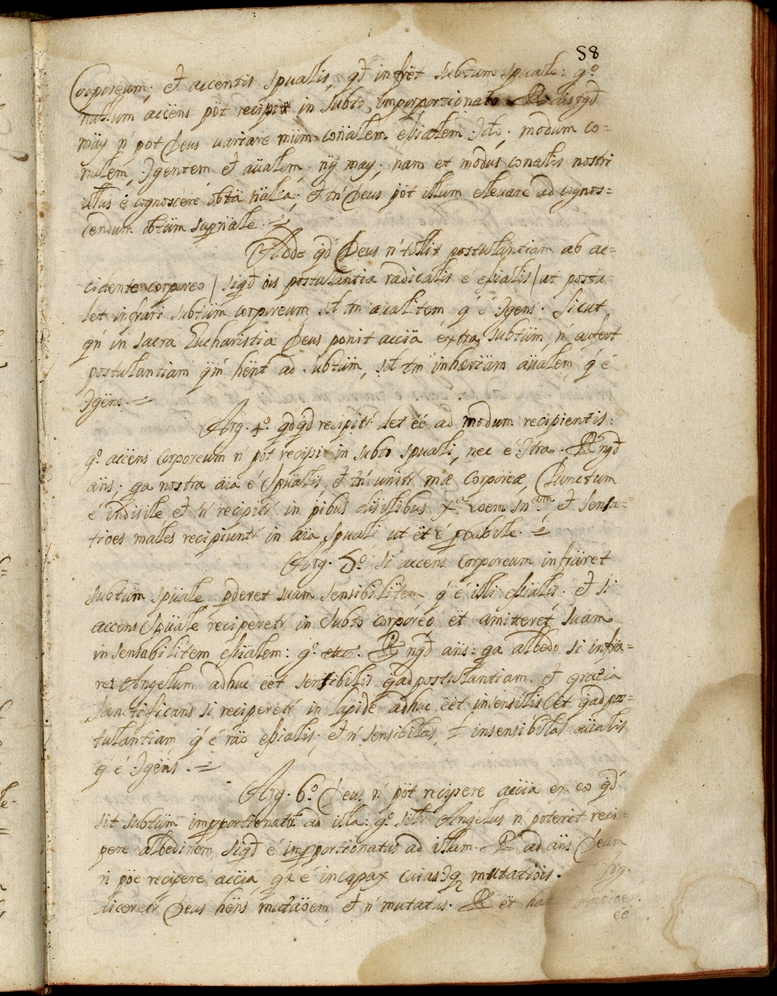 58
Corporeum. Et accentis spualis, qd infret subtum spuale: go
nullum accens pöt recipi in subto improportionato. R. distgd
may. n pot Deus variare mum conalem esialem
modum co=
nalem
gentem et aualem. nij may; nam et modus conalis nostri
illus é cognoscere obta nalia, et tn Deus pöt illum elevare ad cognos=
cendum obtum supnale.
Addo qd Deus n tollit postulantiam ab ac=
cidente corporeo / siqd ois postulantia radicalis e esialis / ut postu
let infrari subtum corporeum sd tm aualitem q é
gens. Sicut
qn in sacra Eucharistia Deus ponit accia extra subtum, n aufert
postulantiam qm hent ad subtum, sd tm inhesum aualem, q é
gens.
Arg. 4o qdqd recipitr det eé ad modum recipientis:
go accens corporeum n pöt recipi in subto spuali, nec e
tra. R ngd
ans. qa nostra aia é spualis et tn unitr mæ corporeæ. Punctum
é indisile et n recipitr in pibus disilibus
et sensa=
tioes males recipiuntr in aia spuali ut et é probabile.
Arg. 5o si accens corporeum infraret
subtum spuale perderet suam sensibilitem q é illi esialis. Et si
accens spuale reciperetr in subto corporeo et amitteret suam
insensabilitem esialem: go etc. R ngd ans: qa albedo si infra=
ret Angelum adhuc eet sensibilis qad postulantiam. Et gratia
santificans si reciperetr in lapide adhuc eet insensilis et qad pos=
tulantiam q é rao esialis; et n sensibilitas, t insensibilitas aualis
q é
gens.
Arg. 6o Deus n pöt recipere accia ex eo qd
sit subtum improportionatu ad illa: go silr Angelus n poteret reci=
pere albedinem siqd é improportionatus ad illam. R ad ans Deum
n pöe recipere accia qa é incapax cuiusq mutatiois.
Arg.
diceretr Deus hens mutaoem et n mutatus. R et
eé